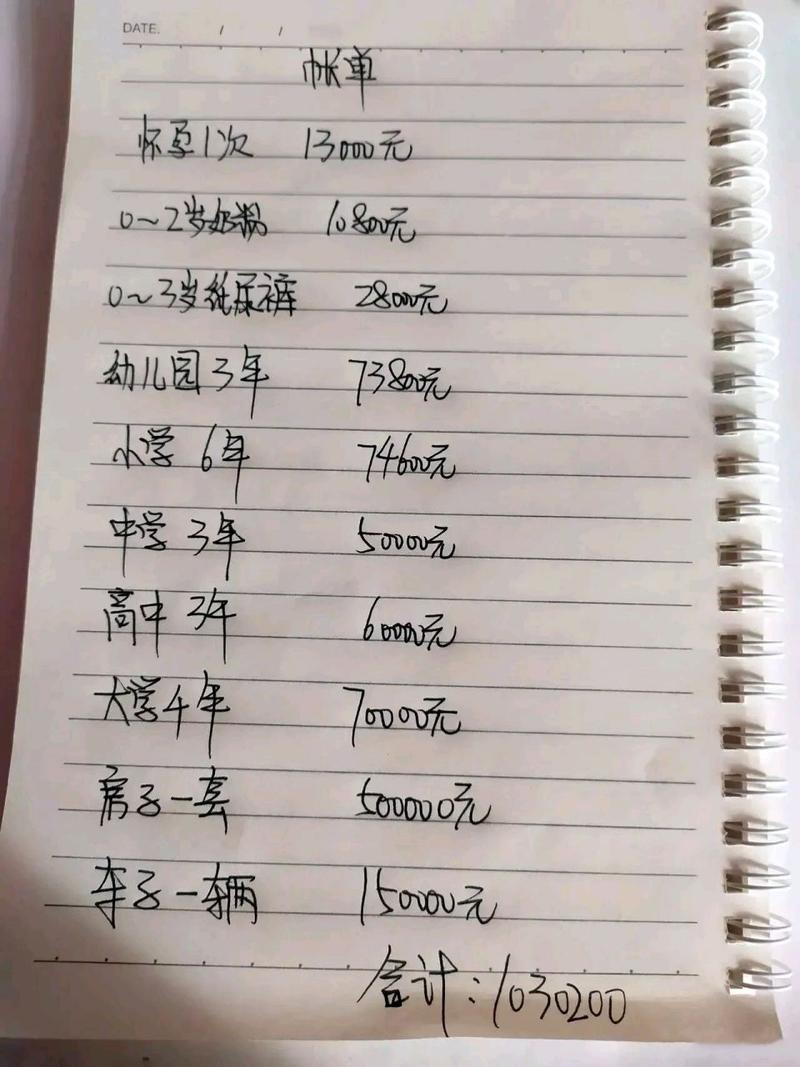 DATE. / /
帐单
怀孕1次 13000元
0~2岁奶粉 10800元
0~3岁纸尿裤 28000元
幼儿园3年 73800元
小学6年 74600元
中学3年 50000元
高中3年 60000元
大学4年 70000元
房子一套 500000元
车子一辆 150000元
合计:1030200